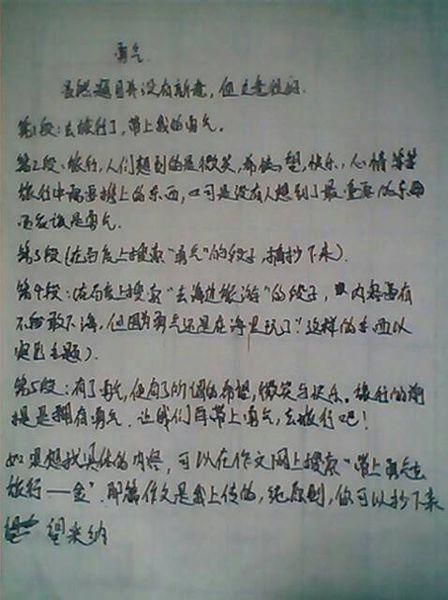 勇气
虽然题目并没有新意，但立意很好。
第1段：去旅行了，带上我的勇气。
第2段：旅行，人们想到的是微笑，希望，快乐，心情等等
旅行中需要带上的东西，可是没有人想到了最重要的东西
而应该是勇气。
第3段（在百度上搜索“勇气”的段子，摘抄下来）。
第4段：（在百度上搜索“去海边旅游”的段子，内容要有
不敢下海，但因为勇气还是在海里玩了”这样的东西以
突出主题）。
第5段：有了勇气，便有了所谓的希望，微笑与快乐。旅行的前
提是拥有勇气。让我们再带上勇气，去旅行吧！
如果想找具体的内容，可以在作文网上搜索“带上勇气去
旅行——金”。那篇作文是我上传的，纯原创，你可以抄下来
望采纳